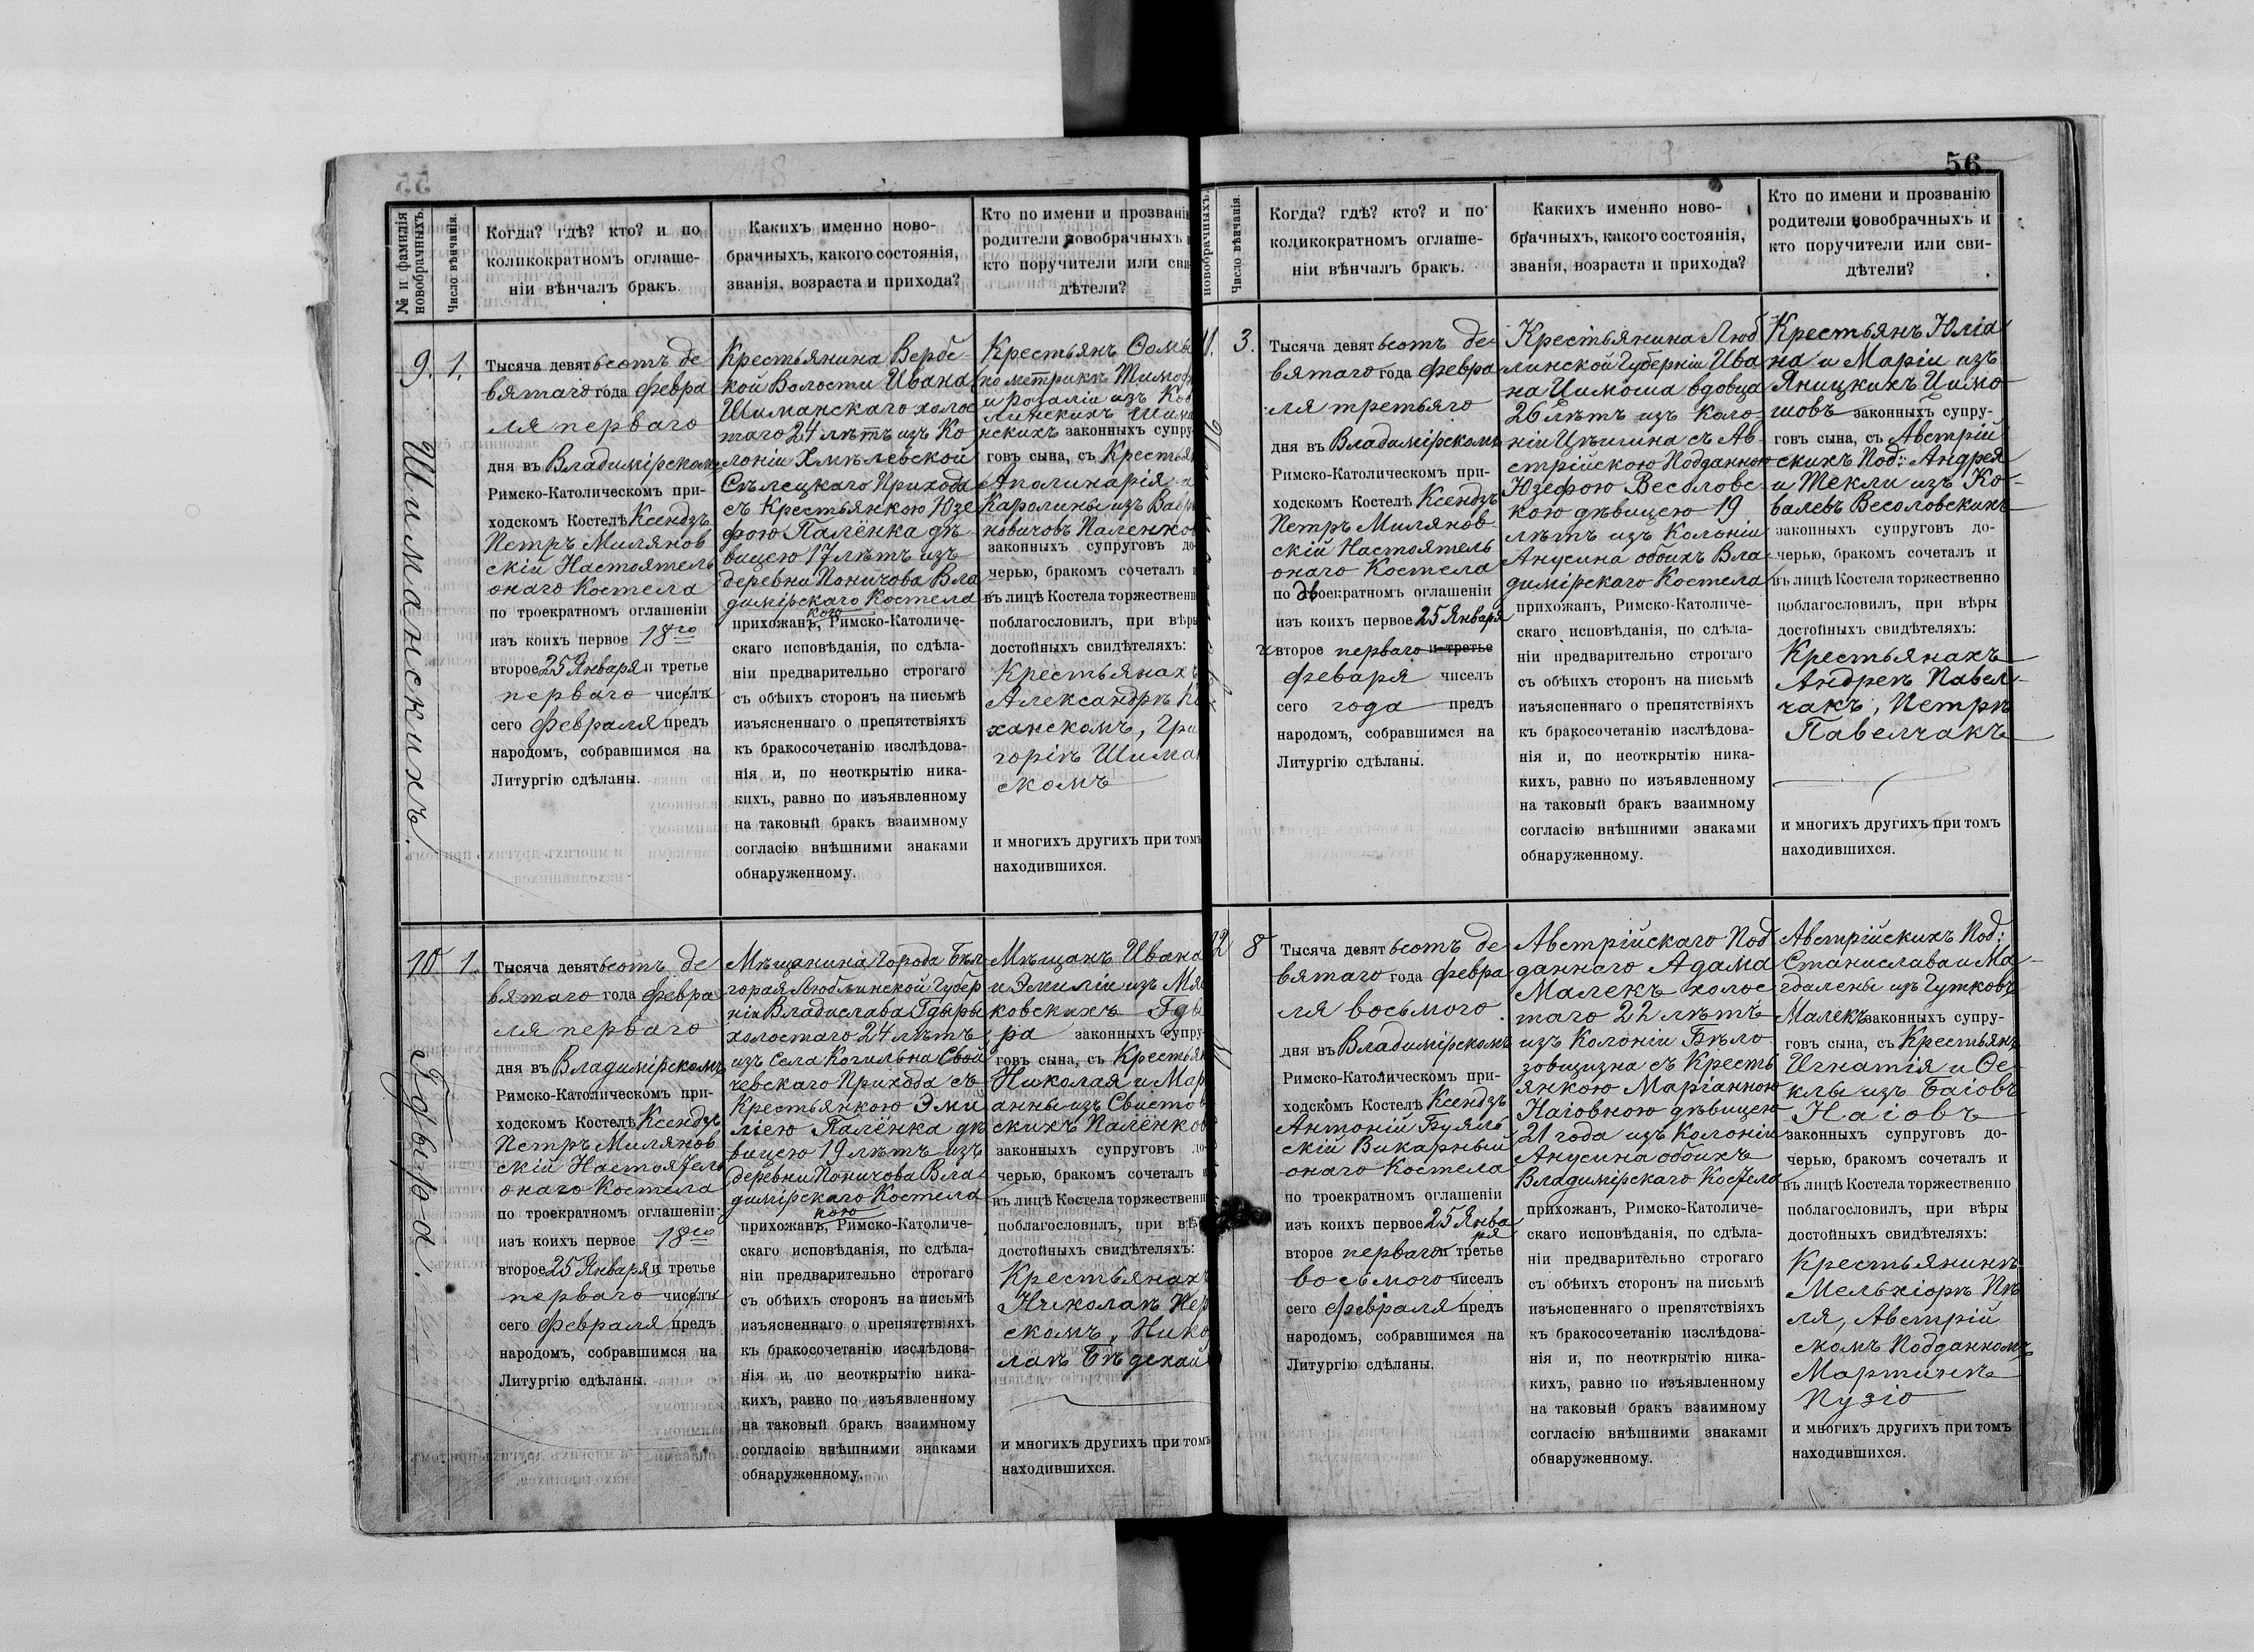 56
№ и фамилія новобрачныхъ.
Число вѣнчанія.
Когда? гдѣ? кто? и по
коликократномъ оглаше-
ніи вѣнчалъ бракъ.
Какихъ именно ново-
брачныхъ, какого состоянія,
званія, возраста и прихода?
Кто по имени и прозванію
родители новобрачныхъ и
кто поручители или сви-
дѣтели?
9. 1.
Шиманскихъ.
Тысяча девятьсотъ де
вятаго года февра
ля перваго
дня въ Владимірскомъ
Римско-Католическомъ при-
ходскомъ Костелѣ Ксендзъ
Петръ Милянов
скій Настоятель
онаго Костела
по троекратномъ оглашеніи
изъ коихъ первое 18го
второе 25 Января и третье
перваго чиселъ
сего февраля предъ
народомъ, собравшимся на
Литургію сдѣланы.
Крестьянина Вербс-
кой Волости Ивана
Шиманскаго холос
таго 24 лѣтъ изъ Ко
лоніи Хмѣлевской
Сѣлецкаго Прихода
съ Крестьянкою Юзе
фою Палёнка дѣ-
вицею 17 лѣтъ изъ
деревни Поничова Вла
димірскаго Костела
кою
прихожанъ, Римско-Католиче-
скаго исповѣданія, по сдѣла-
ніи предварительно строгаго
съ обѣихъ сторонъ на письмѣ
изъясненнаго о препятствіяхъ
къ бракосочетанію изслѣдова-
нія и, по неоткрытію ника-
кихъ, равно по изъявленному
на таковый бракъ взаимному
согласію внѣшними знаками
обнаруженному.
Крестьянъ Ѳомы
по метрикѣ Тимоф
и Розаліи изъ Коб
линскихъ Шима
нскихъ законныхъ супру-
говъ сына, съ Крестьян
Аполинарія и
Каролины изъ Вавры
новичовъ Паленков
законныхъ супруговъ до
черью, бракомъ сочеталъ и
въ лицѣ Костела торжественн
поблагословилъ, при вѣры
достойныхъ свидѣтеляхъ:
Крестьянахъ
Александрѣ
ханскомъ, Гри
горіѣ Шиман
скомъ
и многихъ другихъ при томъ
находившихся.
10. 1.
Гдыра.
Тысяча девятьсотъ де
вятаго года февра
ля перваго
дня въ Владимірскомъ
Римско-Католическомъ при-
ходскомъ Костелѣ Ксендзъ
Петръ Милянов
скій Настоятель
онаго Костела
по троекратномъ оглашеніи
изъ коихъ первое 18го
второе 25 Января и третье
перваго чиселъ
сего февраля предъ
народомъ, собравшимся на
Литургію сдѣланы.
Мѣщанина Города Бѣл
горая Люблинской Губер
ніи Владислава Гдыры
холостаго 24 лѣтъ
изъ Села Когильна Свой
чевскаго Прихода съ
Крестьянкою Эми
ліею Палёнка дѣ
вицею 19 лѣтъ изъ
деревни Поничова Вла
димірскаго Костела
кою
прихожанъ, Римско-Католиче-
скаго исповѣданія, по сдѣла-
ніи предварительно строгаго
съ обѣихъ сторонъ на письмѣ
изъясненнаго о препятствіяхъ
къ бракосочетанію изслѣдова-
нія и, по неоткрытію ника-
кихъ, равно по изъявленному
на таковый бракъ взаимному
согласію внѣшними знаками
обнаруженному.
Мѣщанъ Ивана
и Эмиліи изъ Мяс
ковскихъ Гды
ра законныхъ супру-
говъ сына, съ Крестьян
Николая и Мар
анны изъ Свистов
скихъ Паленков
законныхъ супруговъ до
черью, бракомъ сочеталъ и
въ лицѣ Костела торжественн
поблагословилъ, при вѣ
достойныхъ свидѣтеляхъ:
Крестьянахъ
Николаѣ Пер
скомъ, Нико
лаѣ
и многихъ другихъ при томъ
находившихся.
новобрачныхъ.
Число вѣнчанія.
Когда? гдѣ? кто? и по
коликократномъ оглаше-
ніи вѣнчалъ бракъ.
Какихъ именно ново-
брачныхъ, какого состоянія,
званія, возраста и прихода?
Кто по имени и прозванію
родители новобрачныхъ и
кто поручители или сви-
дѣтели?
11. 3.
Тысяча девятьсотъ де-
вятаго года февра
ля третьяго
дня въ Владимірскомъ
Римско-Католическомъ при-
ходскомъ Костелѣ Ксендзъ
Петръ Милянов-
скій Настоятель
онаго Костела
по двоекратномъ оглашеніи
изъ коихъ первое 25 Января
и второе перваго и третье
феваря чиселъ
сего года предъ
народомъ, собравшимся на
Литургію сдѣланы.
Крестьянина Люб
линской Губерніи Ива
на Цимоша вдовца
26 лѣтъ изъ Коло-
ніи Цѣшина съ Ав-
стрійскою Подданною
Юзефою Весоловс-
кою дѣвицею 19
лѣтъ изъ Колоніи
Анусина обоихъ Вла
димірскаго Костела
прихожанъ, Римско-Католиче-
скаго исповѣданія, по сдѣла-
ніи предварительно строгаго
съ обѣихъ сторонъ на письмѣ
изъясненнаго о препятствіяхъ
къ бракосочетанію изслѣдова-
нія и, по неоткрытію ника-
кихъ, равно по изъявленному
на таковый бракъ взаимному
согласію внѣшними знаками
обнаруженному.
Крестьянъ Юліа
на и Маріи изъ
Яницкихъ Цимо-
шовъ законныхъ супру-
говъ сына, съ Австрій
скихъ Под: Андрея
и Текли изъ Ко-
валевъ Весоловскихъ
законныхъ супруговъ до-
черью, бракомъ сочеталъ и
въ лицѣ Костела торжественно
поблагословилъ, при вѣры
достойныхъ свидѣтеляхъ:
Крестьянахъ
Андреѣ Павел-
чакъ, Петрѣ
Павелчакъ
и многихъ другихъ при томъ
находившихся.
12 8
Тысяча девятьсотъ де
вятаго года февра
ля восьмого
дня въ Владимірскомъ
Римско-Католическомъ при-
ходскомъ Костелѣ Ксендзъ
Антоній Буяль
скій Викарный
онаго Костела
по троекратномъ оглашеніи
изъ коихъ первое 25 Янва
ря
второе перваго и третье
восьмого чиселъ
сего февраля предъ
народомъ, собравшимся на
Литургію сдѣланы.
Австрійскаго Под
даннаго Адама
Малекъ холос
таго 22 лѣтъ
изъ Колоніи Бѣло
зовщизна съ Кресть
янкою Маріанною
Нагowною дѣвицею
21 года изъ Колоніи
Анусина обоихъ
Владимірскаго Костела
прихожанъ, Римско-Католиче-
скаго исповѣданія, по сдѣла-
ніи предварительно строгаго
съ обѣихъ сторонъ на письмѣ
изъясненнаго о препятствіяхъ
къ бракосочетанію изслѣдова-
нія и, по неоткрытію ника-
кихъ, равно по изъявленному
на таковый бракъ взаимному
согласію внѣшними знаками
обнаруженному.
Австрійскихъ Под:
Станислава и Ма-
гдалены изъ Гутковъ
Малекъ законныхъ супру-
говъ сына, съ Крестьянъ
Игнатія и Ѳе-
клы изъ Баговъ
Наговъ
законныхъ супруговъ до-
черью, бракомъ сочеталъ и
въ лицѣ Костела торжественно
поблагословилъ, при вѣры
достойныхъ свидѣтеляхъ:
Крестьянинѣ
Мельхіорѣ Пѣ
ля, Австрій
скомъ Подданномъ
Мартинѣ
Пузіо
и многихъ другихъ при томъ
находившихся.